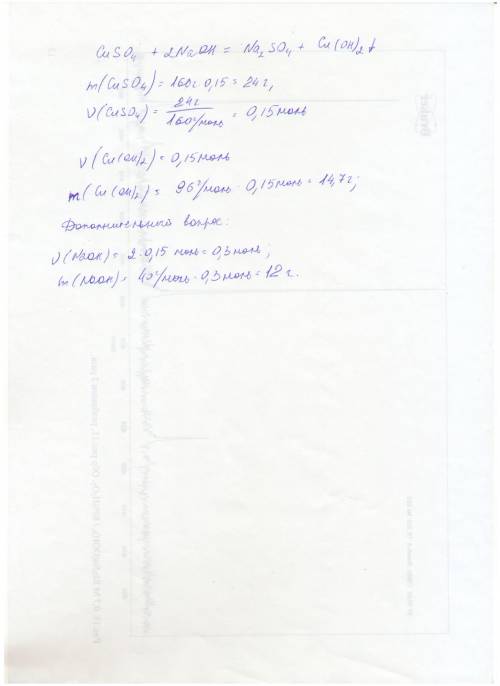 CuSO₄ + 2NaOH = Na₂SO₄ + Cu(OH)₂↓
m(CuSO₄) = 160г·0,15 = 24г,
ν(CuSO₄) = 24г / 160г/моль = 0,15моль
ν(Cu(OH)₂) = 0,15моль
m(Cu(OH)₂) = 96г/моль · 0,15моль = 14,7г;
Дополнительный вопрос:
ν(NaOH) = 2·0,15 моль = 0,3моль;
m(NaOH) = 40г/моль · 0,3моль = 12г.
Bruker